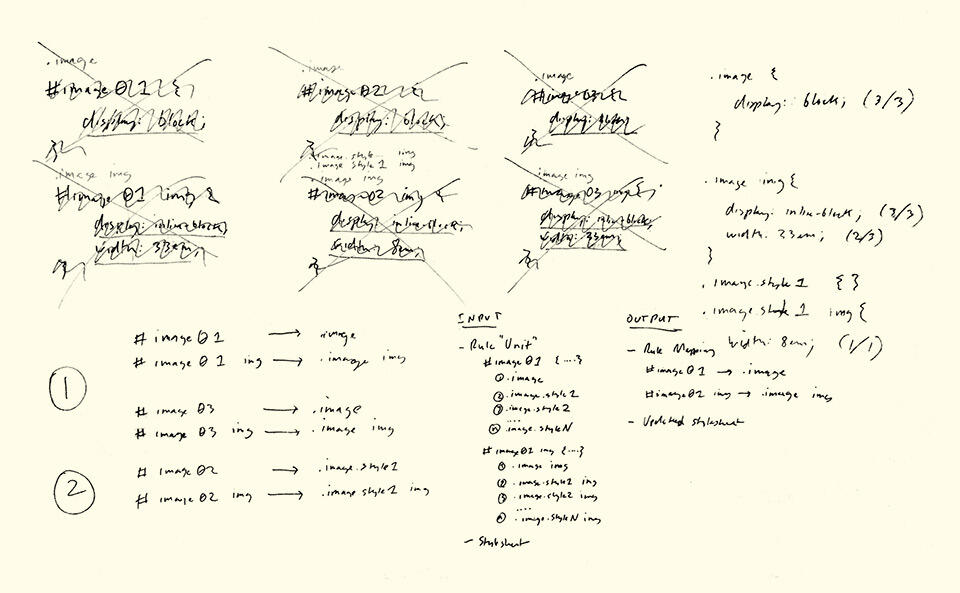 .image
#image01 {
display: block;
}
.image img
#image01 img {
display: inline-block;
width: 33em;
}
.image
#image02 {
display: block;
}
.image.style
.image style1 img
.image img
#image02 img {
display: inline-block;
width: 8em;
}
.image
#image03 {
display: block;
}
.image img
#image03 img {
display: inline-block;
width: 33em;
}
.image {
display: block; (3/3)
}
.image img {
display: inline-block; (3/3)
width: 33em; (2/3)
}
.image.style1 { }
.image.style1 img {
width: 8em; (1/1)
①
#image01 → .image
#image01 img → .image img
#image03 → .image
#image03 img → .image img
②
#image02 → .image.style1
#image02 img → .image.style1 img
INPUT
- Rule "Unit"
#image01 {....}
① .image
② .image.style1
③ .image.style2
....
ⓝ .image.styleN
#image01 img {....}
① .image img
② .image.style1 img
③ .image.style2 img
....
ⓝ .image.styleN img
- Stylesheet
OUTPUT
- Rule Mapping
#image01 → .image
#image01 img → .image img
- Updated stylesheet